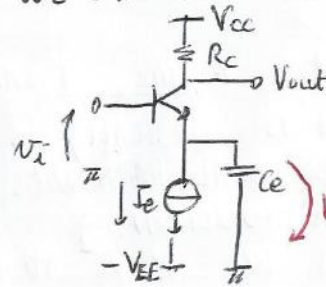 Vcc
Rc
Vout
vi
Ie
Ce
-VEE